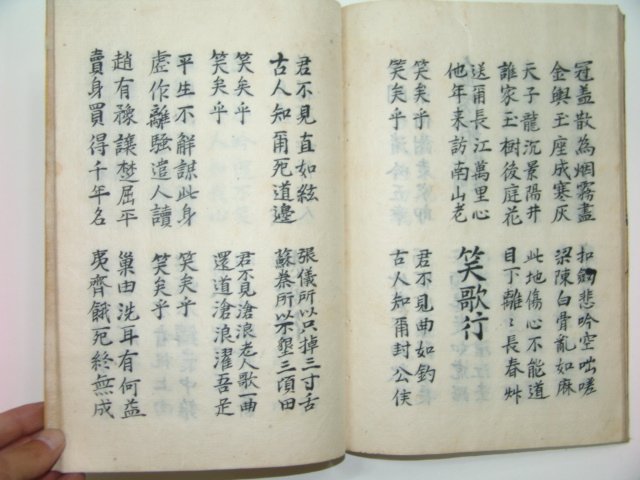 冠盖散为烟霧盡
金輿玉座成寒灰
扣劔悲吟空咄嗟
梁陳白骨亂如麻
天子龍沉景陽井
誰家玉樹後庭花
此地傷心不能道
目下離〻長春艸
送爾長江萬里心
他年来訪南山老
笑歌行
笑矣乎
笑矣乎
君不見曲如鈎
古人知爾封公侯
君不見直如絃
古人知爾死道邊
張儀所以只掉三寸舌
蘇秦所以不墾二頃田
笑矣乎
笑矣乎
君不見滄浪老人歌一曲
還道滄浪濯吾足
平生不觧謀此身
虛作離騷遣人讀
笑矣乎
笑矣乎
趙有豫讓楚屈平
賣身買得千年名
巢由洗耳有何益
夷齊餓死終無成